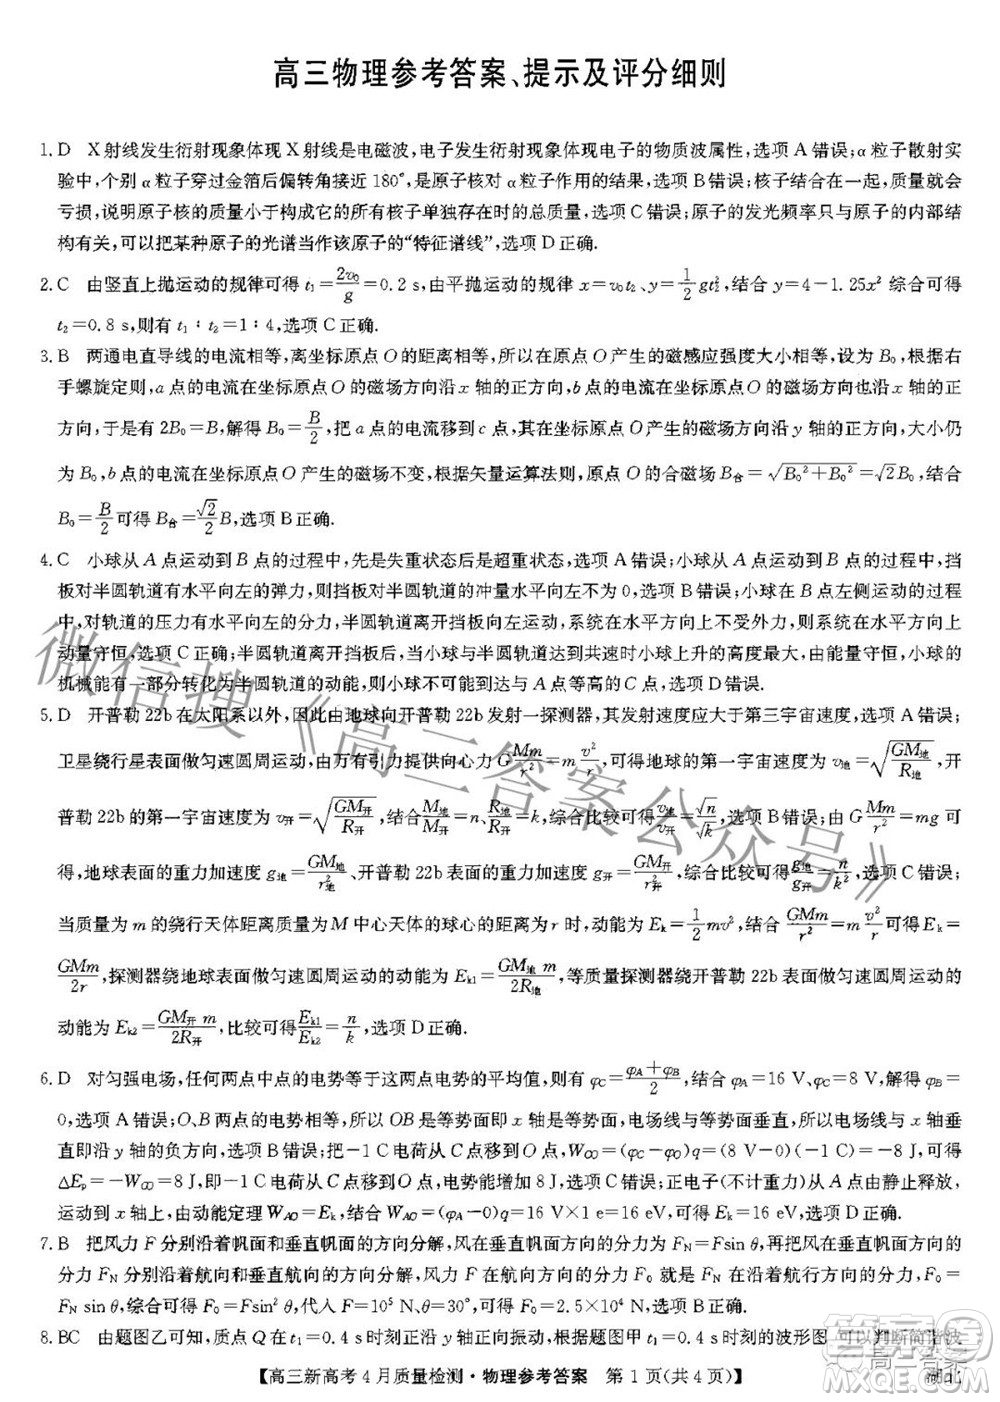 高三物理参考答案、提示及评分细则
1. D X射线发生衍射现象体现X射线是电磁波,电子发生衍射现象体现电子的物质波属性,选项A错误;α粒子散射实
验中,个别α粒子穿过金箔后偏转角接近180°,是原子核对α粒子作用的结果,选项B错误;核子结合在一起,质量就会
亏损,说明原子核的质量小于构成它的所有核子单独存在时的总质量,选项C错误;原子的发光频率只与原子的内部结
构有关,可以把某种原子的光谱当作该原子的“特征谱线”,选项D正确.
2. C 由竖直上抛运动的规律可得t₁=2v₀/g=0.2 s,由平抛运动的规律x=v₀t₂、y=1/2 gt₂²,结合y=4-1.25x²综合可得
t₂=0.8 s,则有t₁∶t₂=1∶4,选项C正确.
3. B 两通电直导线的电流相等,离坐标原点O的距离相等,所以在原点O产生的磁感应强度大小相等,设为B₀,根据右
手螺旋定则,a点的电流在坐标原点O的磁场方向沿x轴的正方向,b点的电流在坐标原点O的磁场方向沿x轴的正
方向,于是有2B₀=B,解得B₀=B/2,把a点的电流移到c点,其在坐标原点O产生的磁场方向沿y轴的正方向,大小仍
为B₀,b点的电流在坐标原点O产生的磁场不变,根据矢量运算法则,原点O的合磁场B合=√(B₀²+B₀²)=√2B₀,结合
B₀=B/2可得B合=√2/2 B,选项B正确.
4. C 小球从A点运动到B点的过程中,先是失重状态后是超重状态,选项A错误;小球从A点运动到B点的过程中,挡
板对半圆轨道有水平向左的弹力,则挡板对半圆轨道的冲量水平向左不为0,选项B错误;小球在B点左侧运动过程
中,对轨道的压力有水平向左的分力,半圆轨道离开挡板向左运动,系统在水平方向上不受外力,系统在水平方向上
动量守恒,选项C正确;半圆轨道离开挡板后,当小球与半圆轨道达到共速时小球上升的高度最大,由动量守恒,小球的
机械能有一部分转化为半圆轨道的动能,则小球不能运动到与A点等高的C点,选项D错误.
5. D 开普勒22b在太阳系以外,因此由地球向开普勒22b发射一探测器,其发射速度应大于第三宇宙速度,选项A错误;
卫星绕行星表面做匀速圆周运动,由万有引力提供向心力G Mm/r²=m v²/r,可得地球的第一宇宙速度为v地=√(GM地/R地),开
普勒22b的第一宇宙速度为v开=√(GM开/R开),结合M地/M开=n、R地/R开=k,综合比较可得v地/v开=√n/√k,选项B错误;由G Mm/r²=mg可
得,地球表面的重力加速度g地=GM地/r²地、开普勒22b表面的重力加速度g开=GM开/r²开,综合比较可得g地/g开=n/k²,选项C错误;
当质量为m的绕行天体距离质量为M中心天体的球心的距离为r时,动能为Eₖ=1/2 mv²,结合GMm/r²=m v²/r可得Eₖ=
GMm/2r,探测器绕地球表面做匀速圆周运动的动能为Eₖ₁=GM地m/2R地,等质量探测器绕开普勒22b表面做匀速圆周运动的
动能为Eₖ₂=GM开m/2R开,比较可得Eₖ₁/Eₖ₂=n/k,选项D正确.
6. D 对匀强电场,任何两点中点的电势等于这两点电势的平均值,则有φC=(φA+φB)/2,结合φA=16 V、φC=8 V,解得φB=
0,选项A错误;O、B两点的电势相等,所以OB是等势面即x轴是等势面,电场线与等势面垂直,所以电场线与x轴垂
直即沿y轴的负方向,选项B错误;把-1 C电荷从C点移到O点,W_CO=(φC-φO)q=(8 V-0)(-1 C)=-8 J,可得
ΔEp=-W_CO=8 J,则把-1 C电荷从C点移到O点,电势能增加8 J,选项C错误;正电子(不计重力)从A点由静止释放,
运动到x轴上,由动能定理W_AO=Eₖ,结合W_AO=(φA-0)q=16 V×1 e=16 eV,可得Eₖ=16 eV,选项D正确.
7. B 把风力F分别沿着帆面和垂直帆面的方向分解,垂直帆面方向的分力为F_N=Fsin θ,再把垂直帆面方向的分力
F_N分别沿着航向和垂直航向分解,风力F在航向方向的分力F₀就是F_N沿着航向方向的分力,F₀=
F_N sin θ,综合可得F₀=Fsin²θ,代入F=10⁵ N、θ=30°,可得F₀=2.5×10⁴ N,选项B正确.
8. BC 由题图乙可知,质点Q在t₁=0.4 s时刻正沿y轴正方向振动,结合题图甲t₁=0.4 s时刻的波形图,可以判断简谐波
【高三新高考4月质量检测·物理参考答案 第1页(共4页)】
湖北
微信搜《高三答案公众号》
高三答案